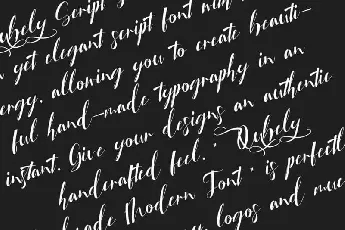 Qubely Script
yet elegant script font
ergy, allowing you to create beauti-
ful hand-made typography in an
instant. Give your designs an authentic
handcrafted feel. " Qubely
Modern Font " is perfectl
logos and